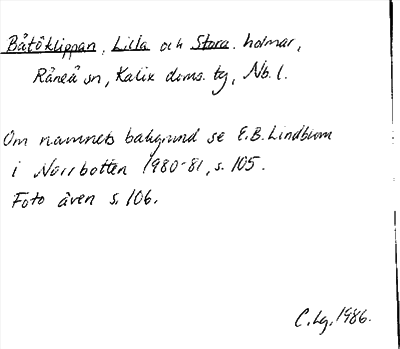 Båtöklippan, Lilla och Stora. holmar,
Råneå sn, Kalix doms. tg, Nb. l.
Om namnets bakgrund se E.B. Lindbum
i Norrbotten 1980-81, s. 105.
Foto även s. 106.
C. Lg. 1986.